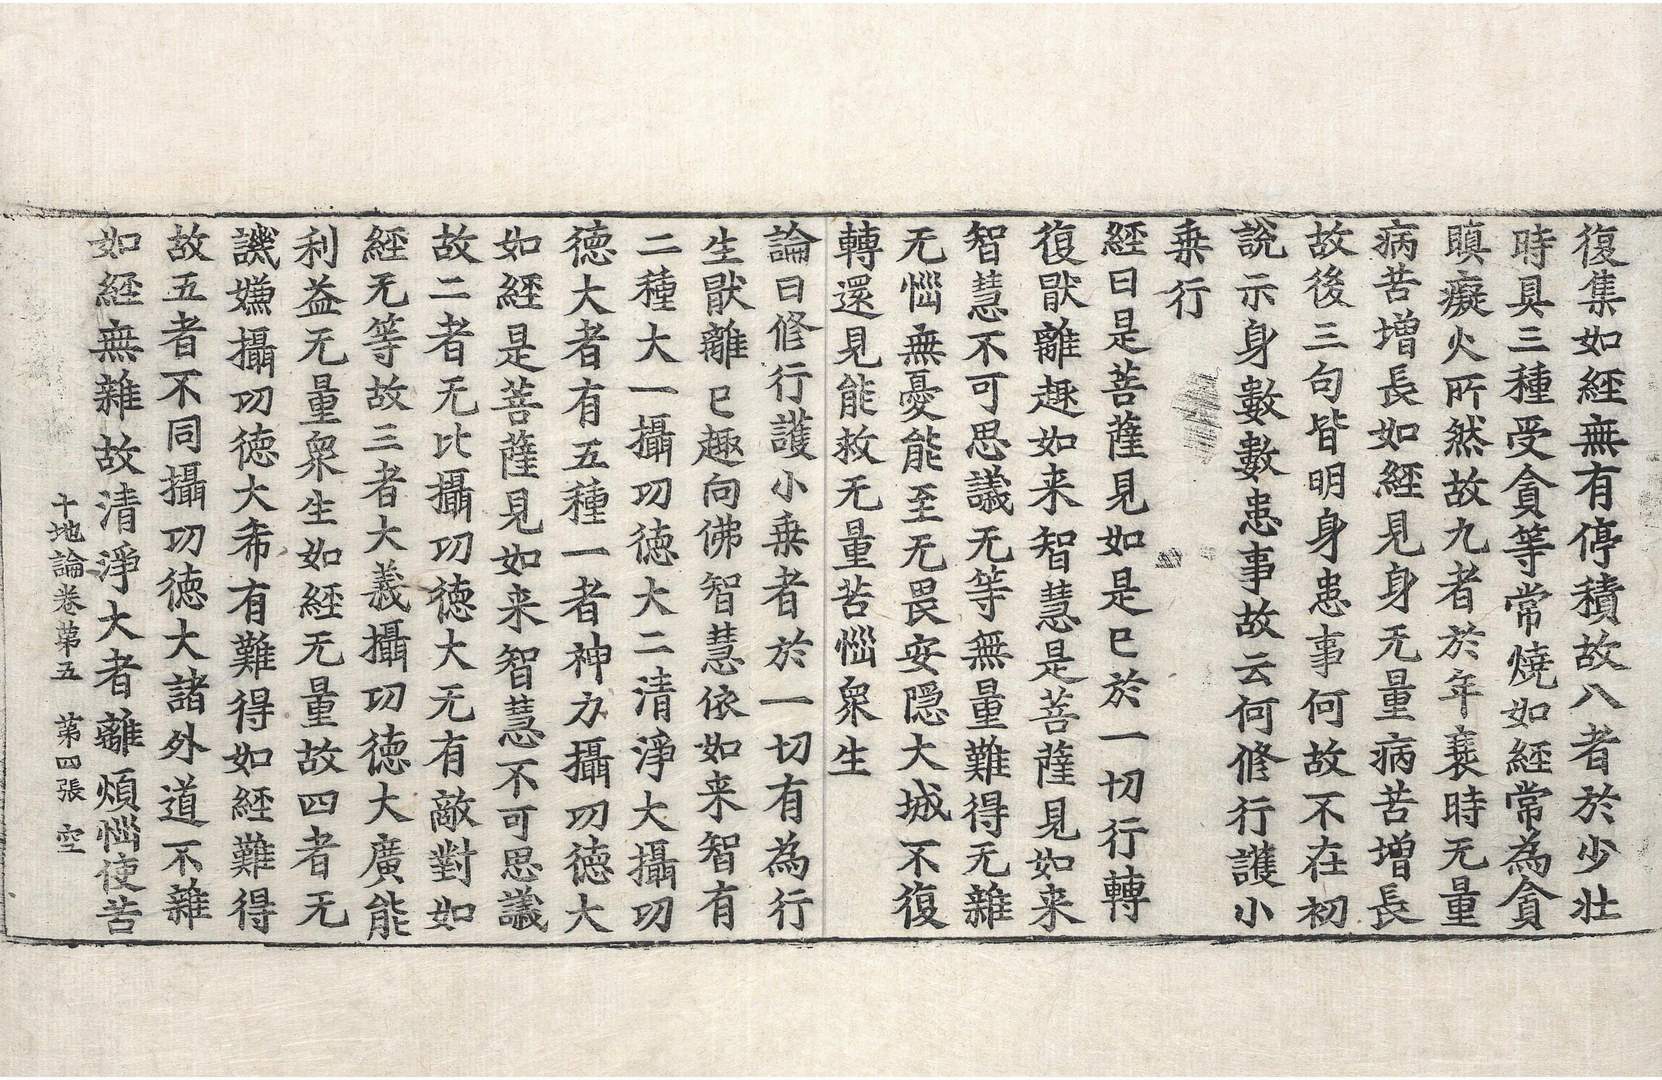 復集如經無有停積故八者於少壯
時具三種受貪等常燒如經常為貪
瞋癡火所然故九者於年衰時无量
病苦增長如經見身无量病苦增長
故後三句皆明身患事何故不在初
說示身數數患事故云何修行護小
乗行
經曰是菩薩見如是已於一切行轉
復猒離趣如来智慧是菩薩見如来
智慧不可思議无等無量難得无雜
无惱無憂能至无畏安隱大城不復
轉還見能救无量苦惱衆生
論曰修行護小乗者於一切有為行
生猒離已趣向佛智慧依如来智有
二種大一攝功德大二清淨大攝功
德大者有五種一者神力攝功德大
如經是菩薩見如来智慧不可思議
故二者无比攝功德大无有敵對如
經无等故三者大義攝功德大廣能
利益无量衆生如經无量故四者无
譏嫌攝功德大希有難得如經難得
故五者不同攝功德大諸外道不雜
如經無雜故清淨大者離煩惱使苦
十地論卷第五 第四張 空